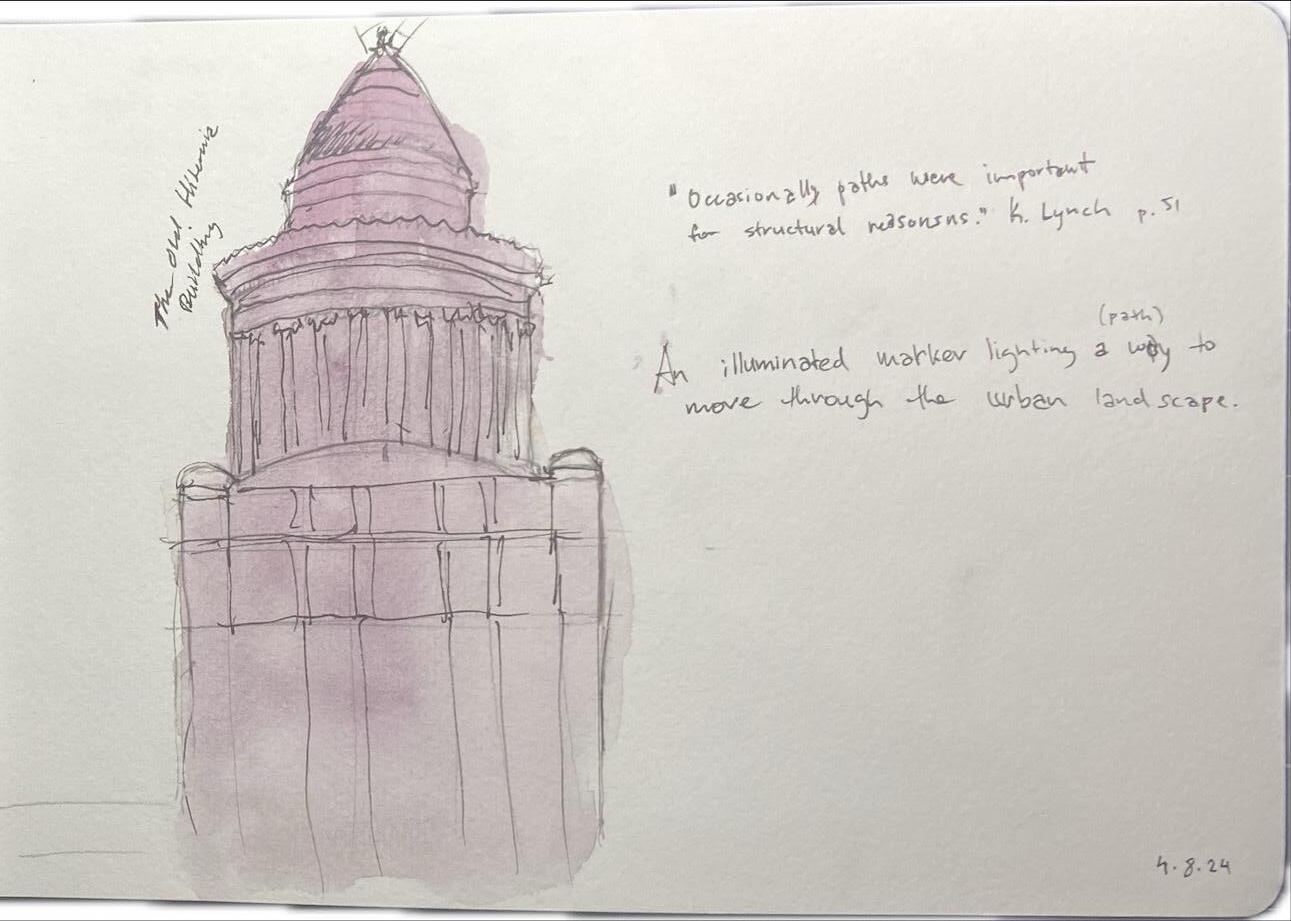 The old Hibernia
Building
"Occasionally paths were important
for structural reasonsns." K. Lynch p. 51
(path)
An illuminated marker lighting a way to
move through the urban landscape.
4.8.24